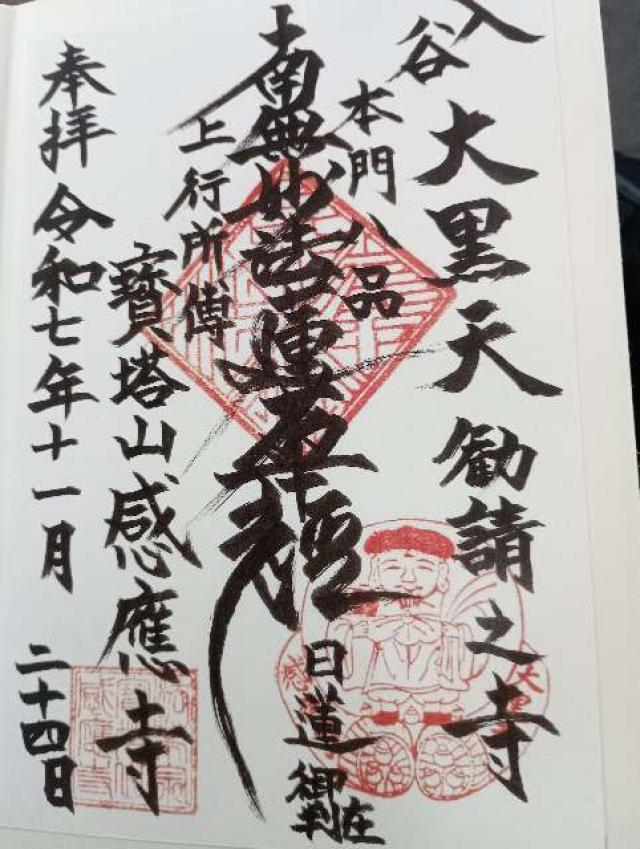 入谷大黒天勧請之寺
本門八品
上行所傳
南無妙法蓮華経
日蓮
在御判
寶塔山感應寺
奉拝令和七年十一月二十四日